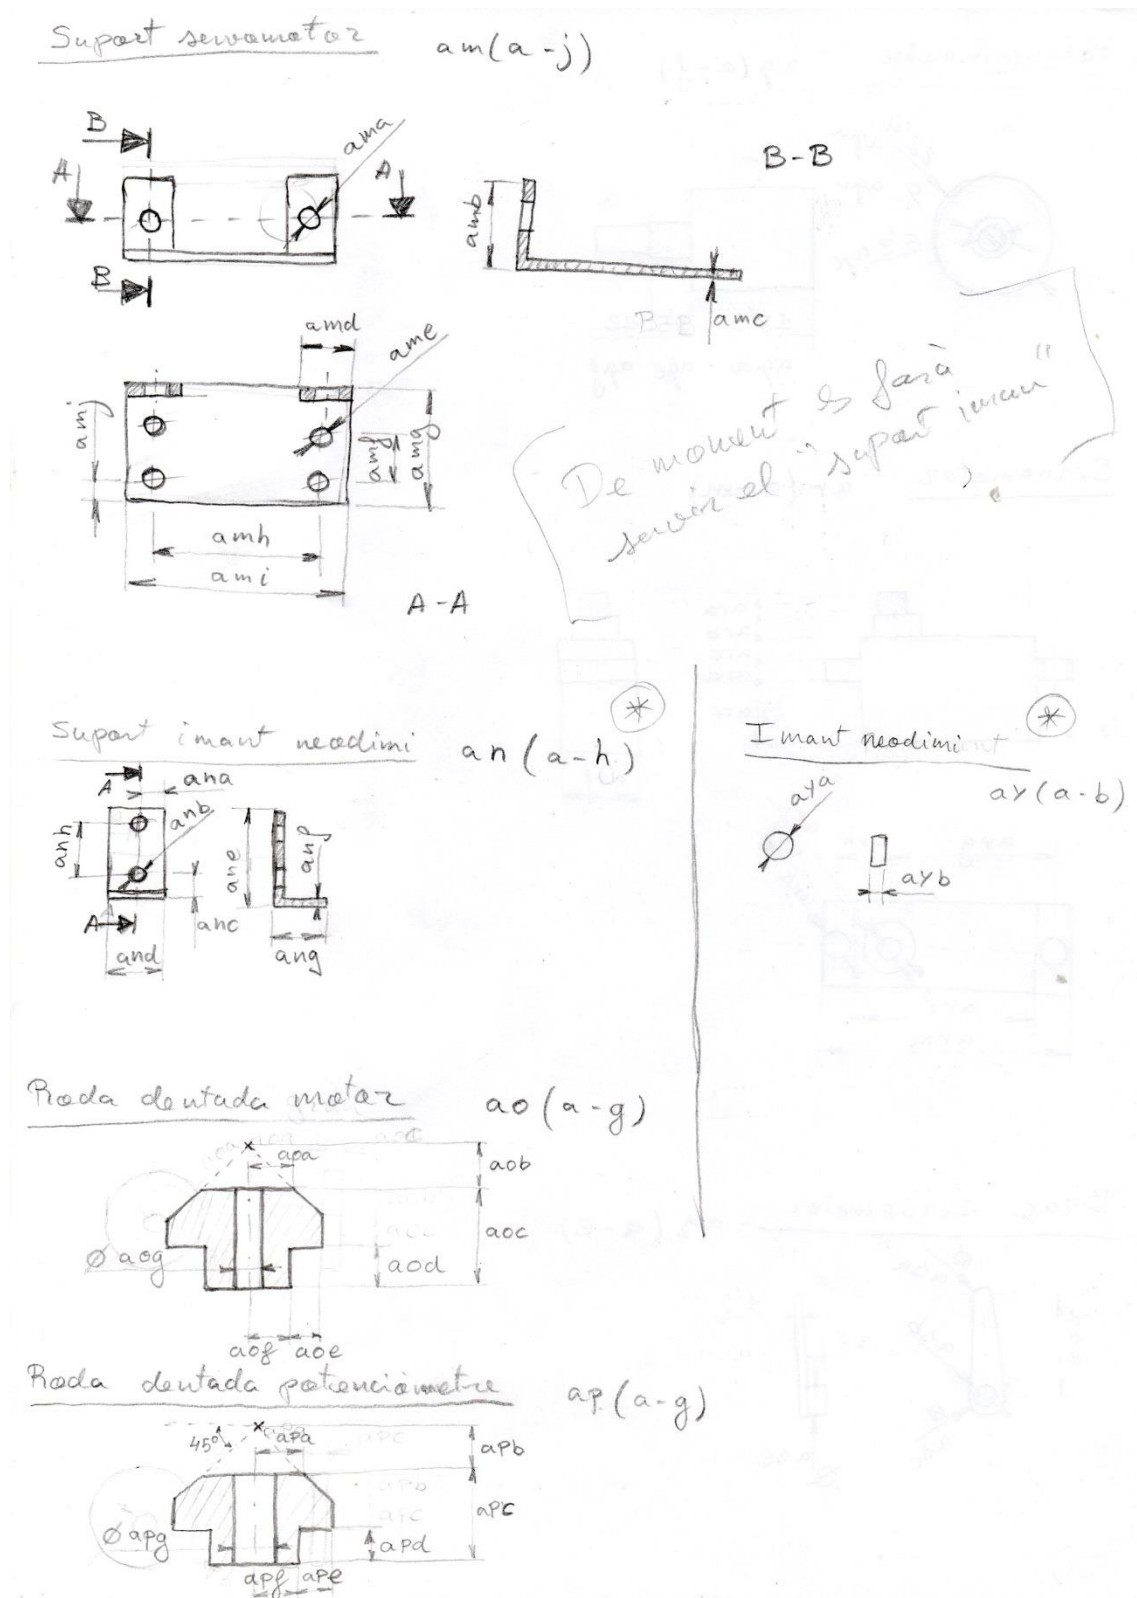 Suport servomotor am(a-j)
B
A
ama
A
B
B-B
amb
amc
amd
ame
amj
amf
amg
amh
ami
A-A
De moment es farà
servir el "suport iman"
Suport imant neodimi an(a-h)
*
A
ana
anb
anh
ane
anf
A
anc
and
ang
Imant neodimi
*
ay(a-b)
aya
ayb
Roda dentada motor ao(a-g)
aoa
aob
aoc
Ø aog
aod
aof aoe
Roda dentada potenciòmetre ap(a-g)
45°
apa
apb
apc
Ø apg
apd
apf ape